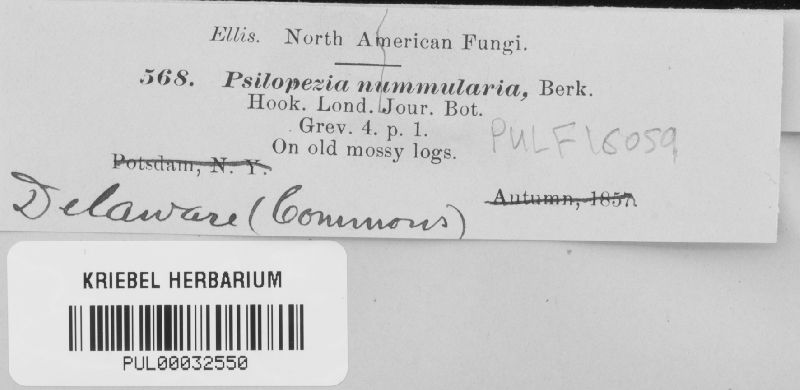 Ellis. North American Fungi.
568. Psilopezia nummularia, Berk.
Hook. Lond. Jour. Bot.
Grev. 4. p. 1.
On old mossy logs.
PULF16059
Potsdam, N. Y.
Autumn, 1857.
Delaware (Commons)
KRIEBEL HERBARIUM
PUL00032550